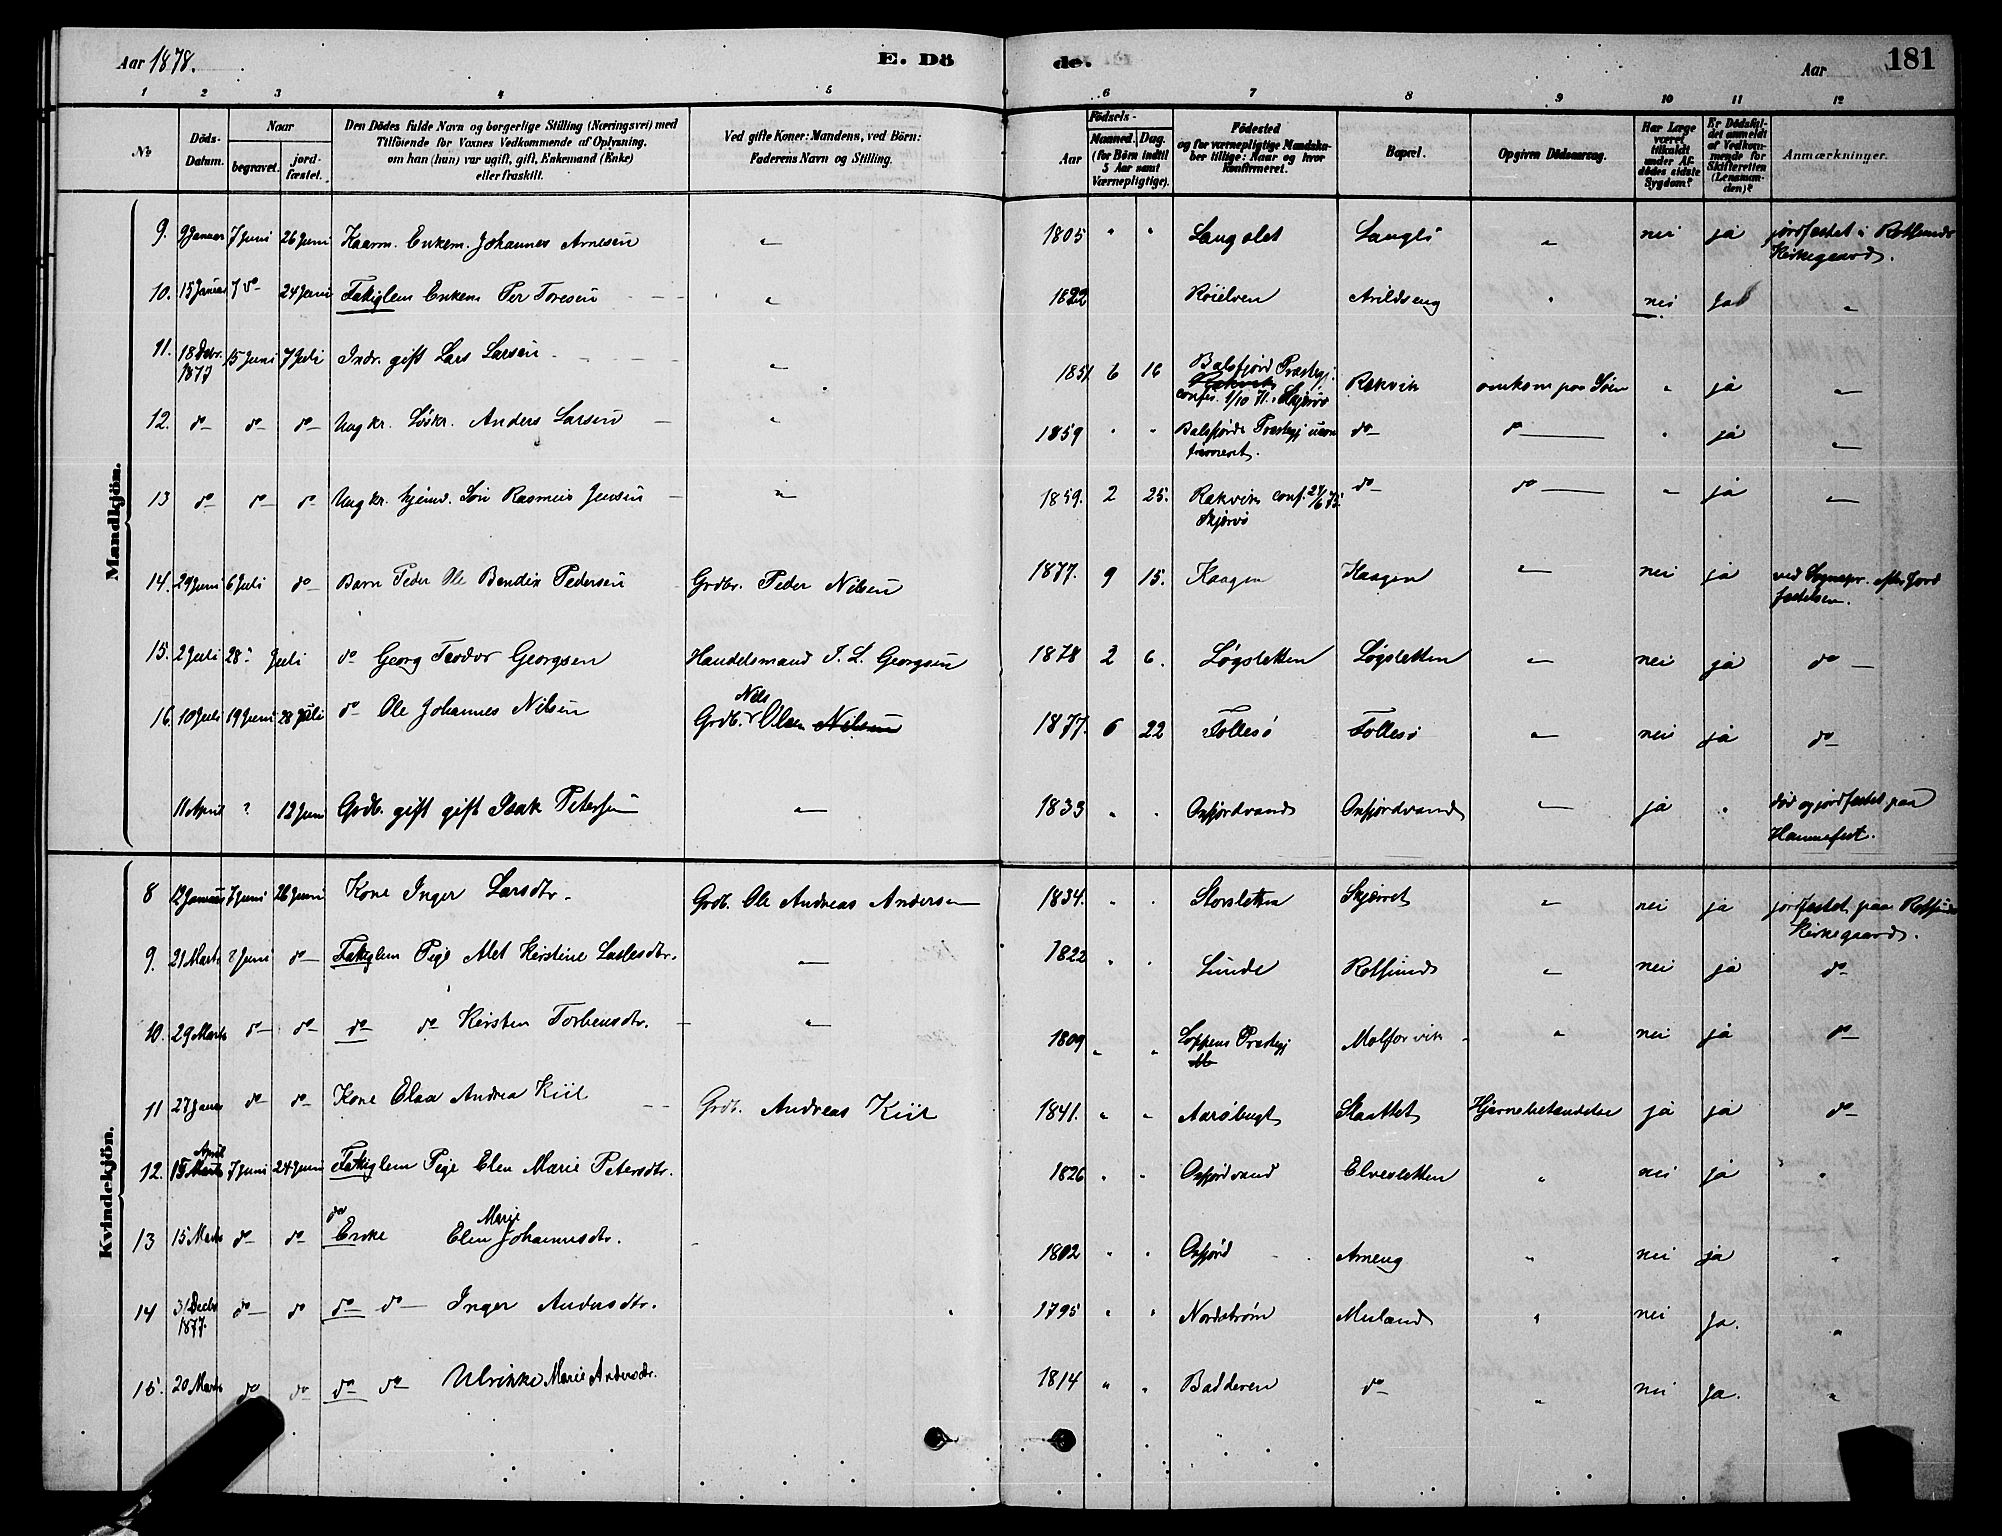 Aar 1878.
E. Dö
de.
Aar
181
1 2 3 4 5 6 7 8 9 10 11 12
No
Döds-Datum.
Naar
begravet.
jord-fæstet.
Den Dödes fulde Navn og borgerlige Stilling (Næringsvei) med
Tilföiende for Voxnes Vedkommende af Oplysning,
om han (hun) var ugift, gift, Enkemand (Enke)
eller fraskilt.
Ved gifte Koner: Mandens, ved Börn:
Faderens Navn og Stilling.
Födsels-
Aar
Maaned. Dag.
(for Börn indtil
5 Aar samt
Værnepligtige).
Födested
og for værnepligtige Mandska-
ber tillige: Naar og hvor
konfirmeret.
Bopæl.
Opgiven Dödsaarsag.
Har Læge
været
tilkaldt
under Af-
dödes sidste
Sygdom?
Er Dödsfal-
det anmeldt
af Vedkom-
mende for
Skifteretten
(Lensman-
den)?
Anmærkninger.
Mandkjön.
9. 9 Januar 7 Juni 26 Juni Kaarm. Enkem. Johannes Arnesen " 1805 " " Langslet Langli " nei ja jordfæstet i Rotsunds
Kirkegaard.
10. 15 Januar 7 do 24 Juni Fatiglem Enkem Per Toresen " 1822 Roielven Arildseng " nei Ja "
11. 18 Decbr. 1877 15 Juni 7 Juli Indr. gift Lars Larsen " 1851 6 16 Balsfjord Præstegj.
confir. 1/10 71. Skjervø Rakvik omkom paa Søen " ja "
12. do do do Ungkr. Løskr. Anders Larsen " 1859 " " Balsfjords Præstegj ucon
firmeret. do do " ja "
13 do do do Ungkr. hjemv. Søn Rasmus Jensen " 1859. 2 25. Rakvik conf. 24/6 75.
Skjervø do do " ja "
14. 29 Juni 6 Juli do Barn Peder Ole Bendix Pedersen Grdbr. Peder Nilsen 1877. 9 15. Kaagen Kaagen " nei ja ved Sognepr. efter Jord
fæstelsen.
15. 2 Juli 28 Juli do Georg Teodor Georgsen Handelsmand I. L. Georgsen 1878 2 6. Løgsletten Løgsletten " nei ja do
16. 10 Juli 19 Juni 28 Juli do Ole Johannes Nilsen Grdb. Nils Olsen Nilsen 1877. 6 22 Follesø Follesø " nei ja do
11 April ? 12 Juni Grdb. gift gift Isak Petersen " 1833 " " Oxfjordvand Oxfjordvand " ja " død og jordfæstet paa
Hammefest.
Kvindekjön.
8 12 Januar 7 Juni 26 Juni Kone Inger Larsdtr. Grdb. Ole Andreas Andersen 1834. " " Storsletten Skjærret " nei ja jordfæstet paa Rotsunds
Kirkegaard.
9. 21 Marts 8 Juni do Fatiglem Pige Alet Kirstine Laslesdtr. " 1822 " " Sunde Rotsund " nei ja do
10. 29 Marts do do do do Kirsten Torbensdtr. " 1809 " " Loppens Præstegj Malforvik " nei ja do
11 27 Janr do do Kone Elaa Andrea Kiil Grdb. Andreas Kiil 1841. " " Aarøbugt Slaattet Hjernebetændelse ja ja do
12. 15 April Marts 7 Juni 24 Juni Fatiglem Pige Elen Marie Petersdtr. 1826 " " Oxfjordvand Elvesletten " nei ja "
13 15 Marts do do do Enke Elen Marie Johannesdtr. 1802 " " Oxfjord Arneng " nei ja "
14 31 Decbr 1877. do do do do Inger Andersdtr. 1795 " " Nordstrøm Meiland " nei Ja. "
15. 20 Marts do do do do Ulrikke Marie Andersdtr. 1814 " " Badderen do " nei Ja. "